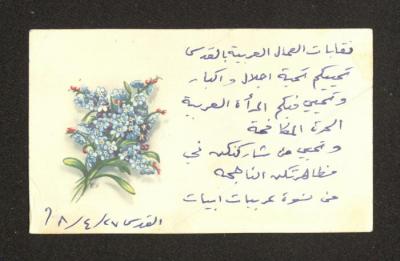 نقابات العمال العربية بالقدس
تحييكم تحية اجلال واكبار
وتحيي فيكم المرأة العربية
الحرة المكافحة
وتحيي من شاركنكن في
مظاهرتكن الناجحة
من نسوة عربيات ابيات
القدس ٢٧/٤/٨